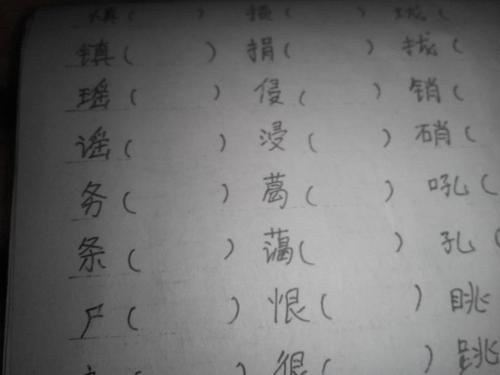 镇( ) 捐( ) 拢(
瑶( ) 侵( ) 销(
谣( ) 浸( ) 硝(
务( ) 葛( ) 吼(
条( ) 蔼( ) 孔(
尸( ) 恨( ) 眺
很( ) 跳